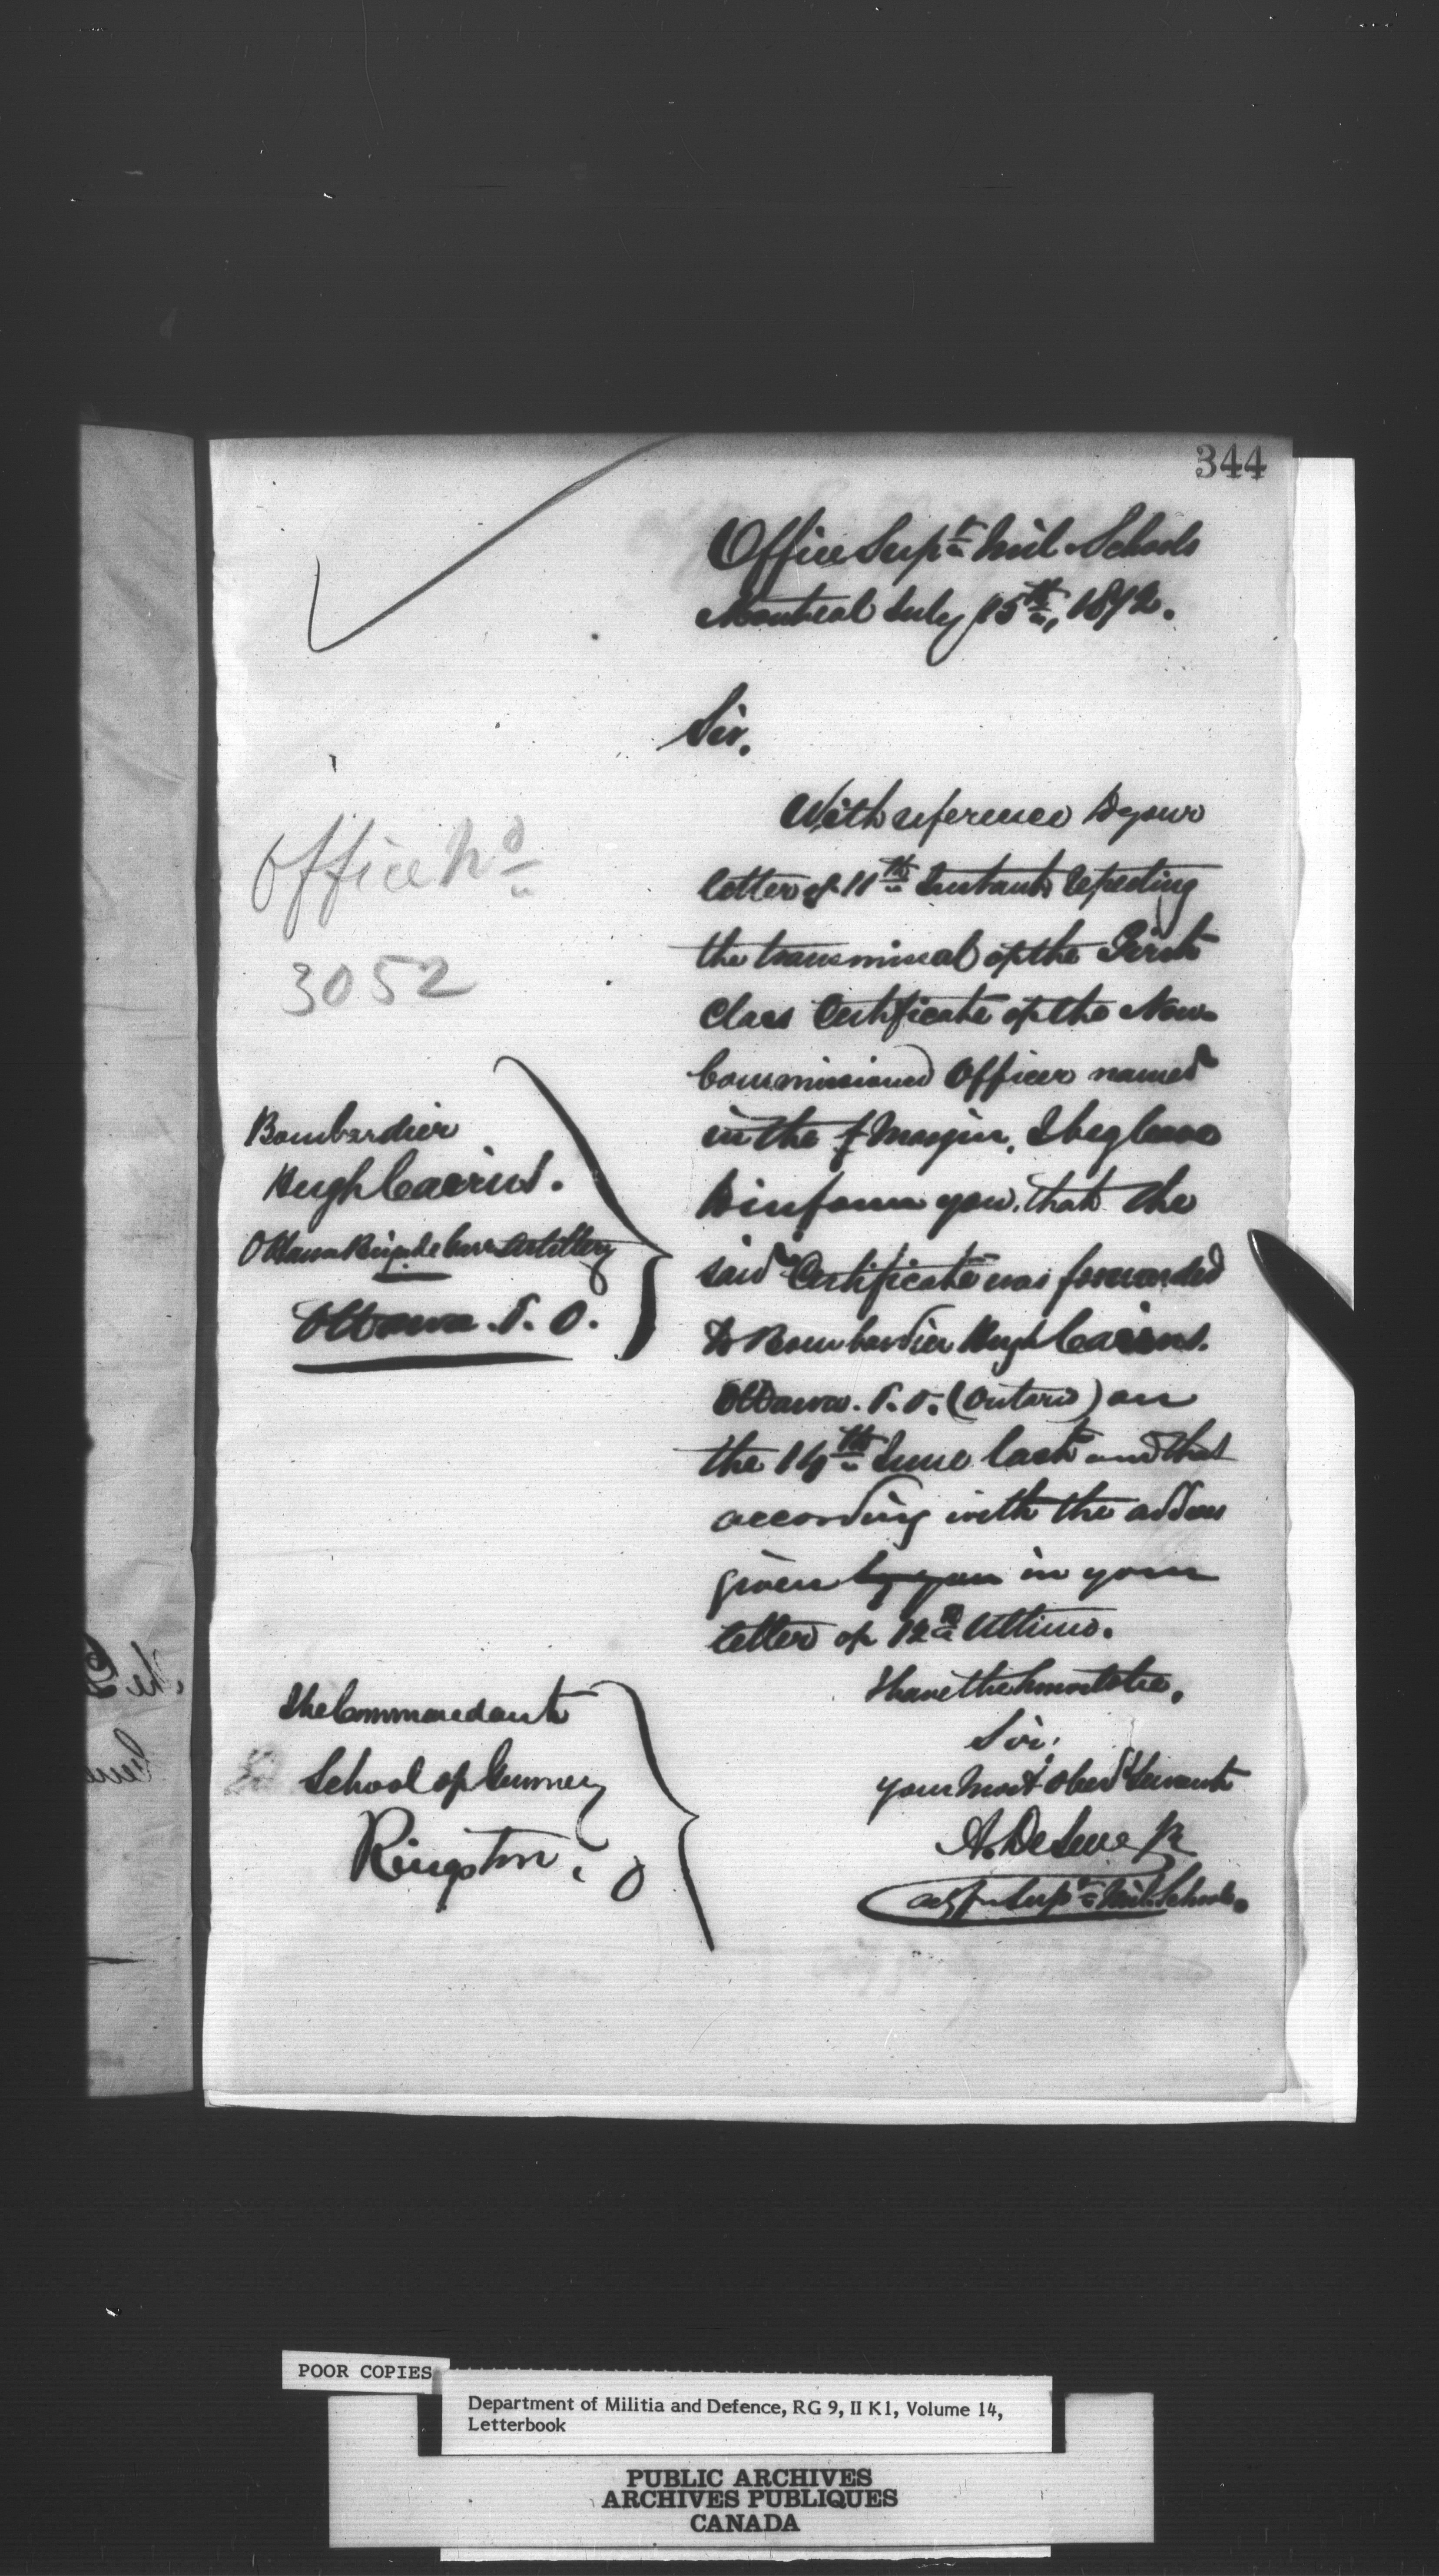 344
Office Supt Mil Schools
Montreal July 15th, 1872.
Sir,
With reference to your
letter of 11th Instant, respecting
the transmissal of the First
Class Certificate of the Non-
Commissioned Officer named
in the Margin, I beg leave
to inform you, that the
said Certificate was forwarded
to Bombardier Hugh Cairns.
Ottawa. P.O. (Ontario) on
the 14th June last and that
according with the address
given by you in your
letter of 12th Ultimo.
I have the honor to be,
Sir,
your Most Obedt Servant
A. DeSeve
Supt Mil Schools.
Office No
3052
Bombardier
Hugh Cairns.
Ottawa Brigade Garn Artillery
Ottawa. P. O.
The Commandant
School of Gunnery
Kingston. O
POOR COPIES
Department of Militia and Defence, RG 9, II K1, Volume 14,
Letterbook
PUBLIC ARCHIVES
ARCHIVES PUBLIQUES
CANADA